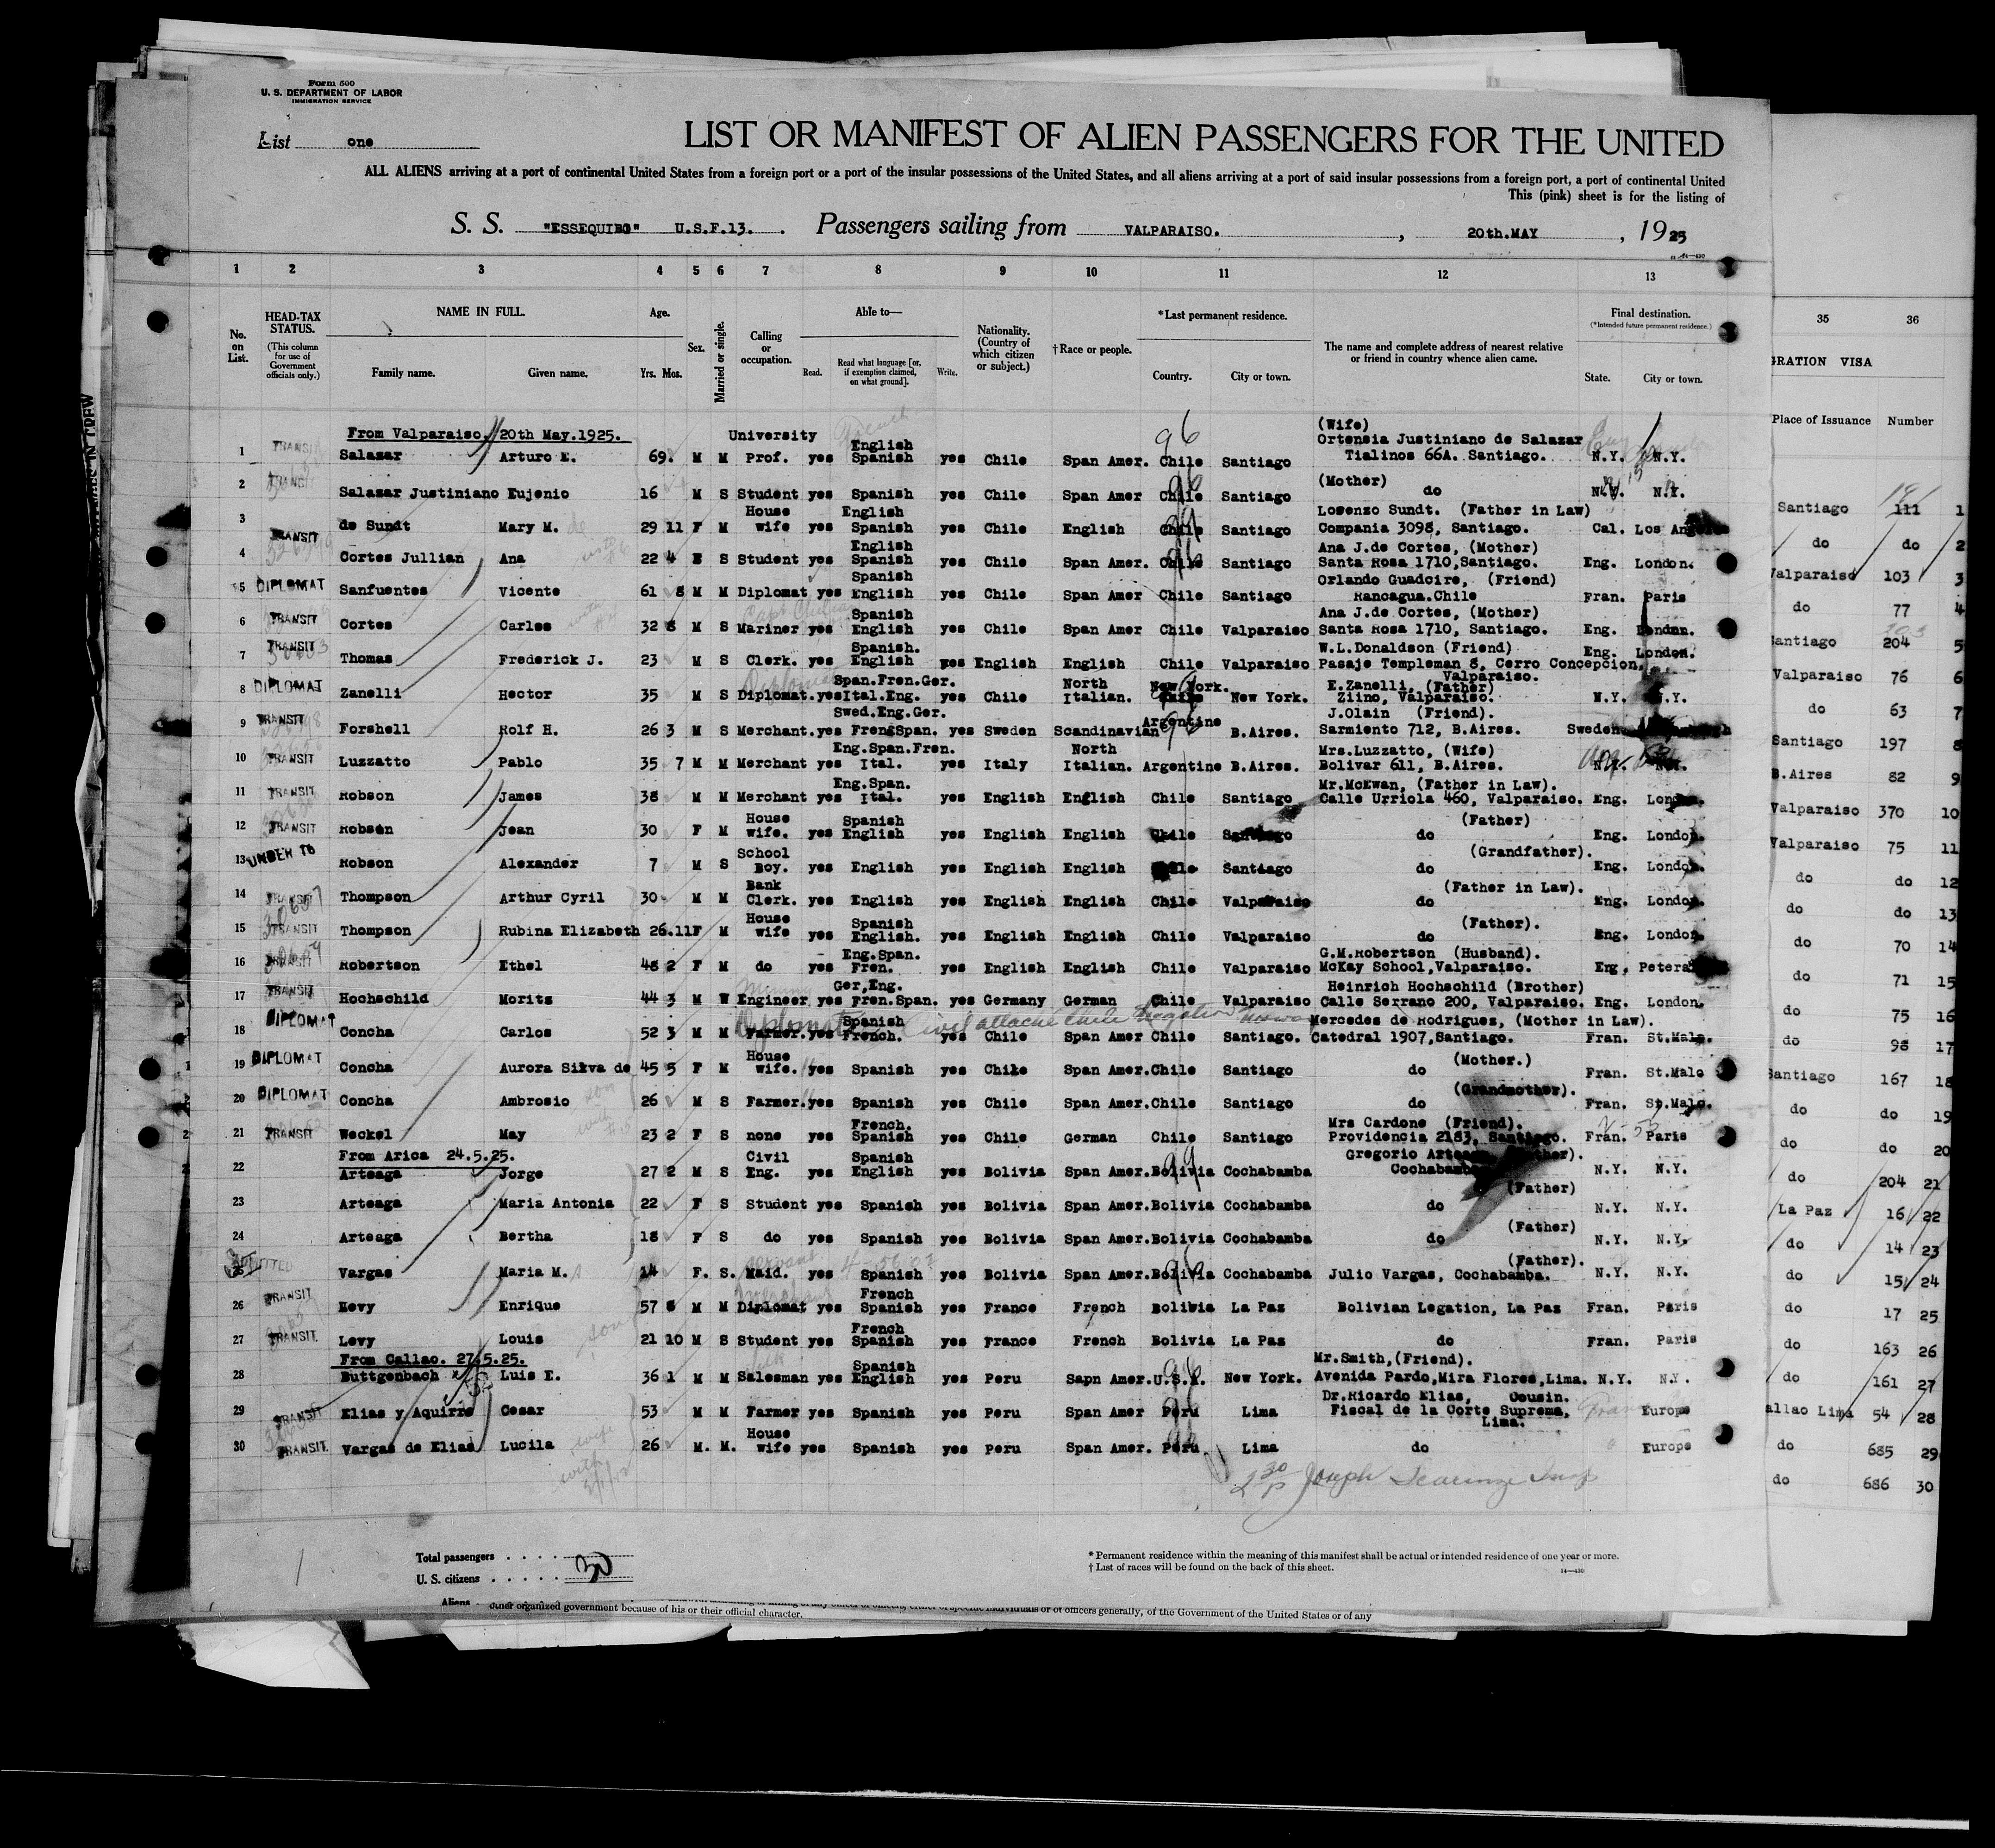 Form 500
U. S. DEPARTMENT OF LABOR
IMMIGRATION SERVICE
List one
LIST OR MANIFEST OF ALIEN PASSENGERS FOR THE UNITED
ALL ALIENS arriving at a port of continental United States from a foreign port or a port of the insular possessions of the United States, and all aliens arriving at a port of said insular possessions from a foreign port, a port of continental United
This (pink) sheet is for the listing of
S. S. "ESSEQUIBO" U.S.F.13. Passengers sailing from VALPARAISO. , 20th.MAY , 1925
14—430
1 2 3 4 5 6 7 8 9 10 11 12 13
No. on List.
HEAD-TAX STATUS.
(This column for use of Government officials only.)
NAME IN FULL.
Family name. Given name.
Age.
Yrs. Mos.
Sex.
Married or single.
Calling or occupation.
Able to—
Read. Read what language [or, if exemption claimed, on what ground]. Write.
Nationality. (Country of which citizen or subject.)
†Race or people.
*Last permanent residence.
Country. City or town.
The name and complete address of nearest relative or friend in country whence alien came.
Final destination.
(*Intended future permanent residence.)
State. City or town.
35 36
GRATION VISA
Place of Issuance Number
From Valparaiso. 20th May.1925.
1 TRANSIT Salazar Arturo E. 69. M M University Prof. yes English Spanish yes Chile Span Amer. Chile Santiago (Wife) Ortensia Justiniano de Salazar Tialinos 66A. Santiago. N.Y. N.Y.
2 TRANSIT Salazar Justiniano Eujenio 16 M S Student yes Spanish yes Chile Span Amer Chile Santiago (Mother) do N.Y. N.Y.
3 de Sundt Mary M. 29 11 F M House wife yes English Spanish yes Chile English Chile Santiago Losenzo Sundt. (Father in Law) Compania 3098, Santiago. Cal. Los
4 TRANSIT Cortes Jullian Ana 22 4 S Student yes English Spanish yes Chile Span Amer. Chile Santiago Ana J.de Cortes, (Mother) Santa Rosa 1710,Santiago. Eng. London.
5 DIPLOMAT Sanfuentes Vicente 61 8 M M Diplomat yes Spanish English yes Chile Span Amer Chile Santiago Orlando Guadoire, (Friend) Rancagua.Chile Fran. Paris
6 TRANSIT Cortes Carlos 32 8 M S Mariner yes Spanish English yes Chile Span Amer Chile Valparaiso Ana J.de Cortes, (Mother) Santa Rosa 1710, Santiago. Eng. London.
7 TRANSIT Thomas Frederick J. 23 M S Clerk. yes Spanish. English yes English English Chile Valparaiso W.L.Donaldson (Friend) Pasaje Templeman 8, Cerro Concepcion, Valparaiso. Eng. London.
8 DIPLOMAT Zanelli Hector 35 M S Diplomat. yes Span.Fren.Ger. Ital.Eng. yes Chile North Italian. New York. Chile New York. E.Zanelli, (Father) Ziino, Valparaiso. N.Y. N.Y.
9 TRANSIT Forshell Rolf H. 26 3 M S Merchant. yes Swed.Eng.Ger. Fren Span. yes Sweden Scandinavian Argentine B.Aires. J.Olain (Friend). Sarmiento 712, B.Aires. Sweden
10 TRANSIT Luzzatto Pablo 35 7 M M Merchant yes Eng.Span.Fren. Ital. yes Italy North Italian. Argentine B.Aires. Mrs.Luzzatto, (Wife) Bolivar 611, B.Aires.
11 TRANSIT Robson James 38 M M Merchant yes Eng.Span. Ital. yes English English Chile Santiago Mr.McEwan, (Father in Law). Calle Urriola 460, Valparaiso. Eng. London.
12 TRANSIT Robson Jean 30 F M House wife. yes Spanish English yes English English Chile Santiago (Father) do Eng. London.
13 UNDER 16 Robson Alexander 7 M S School Boy. yes English yes English English Chile Santiago (Grandfather). do Eng. London.
14 TRANSIT Thompson Arthur Cyril 30 M M Bank Clerk. yes English yes English English Chile Valparaiso (Father in Law). do Eng. London.
15 TRANSIT Thompson Rubina Elizabeth 26.11 F M House wife yes Spanish English. yes English English Chile Valparaiso (Father). do Eng. London.
16 TRANSIT Robertson Ethel 48 2 F M do yes Eng.Span. Fren. yes English English Chile Valparaiso G.M.Robertson (Husband). McKay School,Valparaiso. Eng.
17 TRANSIT Hochschild Morits 44 3 M W Engineer yes Ger,Eng. Fren.Span. yes Germany German Chile Valparaiso Heinrich Hochschild (Brother) Calle Serrano 200, Valparaiso. Eng. London.
Diplomat Civil attaché Chile Legation Norway
18 DIPLOMAT Concha Carlos 52 3 M M Farmer. yes Spanish French. yes Chile Span Amer Chile Santiago. Mercedes de Rodrigues, (Mother in Law). Catedral 1907,Santiago. Fran. St.Malo.
19 DIPLOMAT Concha Aurora Silva de 45 5 F M House wife. yes Spanish yes Chile Span Amer. Chile Santiago (Mother.) do Fran. St.Malo
20 DIPLOMAT Concha Ambrosio 26 M S Farmer. yes Spanish yes Chile Span Amer. Chile Santiago (Grandmother). do Fran. St.Malo.
21 TRANSIT Weckel May 23 2 F S none yes French. Spanish yes Chile German Chile Santiago Mrs Cardone (Friend). Providencia 2183, Santiago. Fran. Paris
From Arica 24.5.25.
22 Arteaga Jorge 27 2 M S Civil Eng. yes Spanish English yes Bolivia Span Amer. Bolivia Cochabamba Gregorio Cochabamba N.Y. N.Y.
23 Arteaga Maria Antonia 22 F S Student yes Spanish yes Bolivia Span Amer. Bolivia Cochabamba (Father) do N.Y. N.Y.
24 Arteaga Bertha 18 F S do yes Spanish yes Bolivia Span Amer. Bolivia Cochabamba (Father) do N.Y. N.Y.
25 ADMITTED Vargas Maria M. 14 F. S. Maid. yes Spanish yes Bolivia Span Amer. Bolivia Cochabamba (Father). Julio Vargas, Cochabamba. N.Y. N.Y.
26 TRANSIT Levy Enrique 57 8 M M Diplomat yes French Spanish yes France French Bolivia La Paz Bolivian Legation, La Paz Fran. Paris
27 TRANSIT Levy Louis 21 10 M S Student yes French Spanish yes France French Bolivia La Paz do Fran. Paris
From Callao. 27.5.25.
28 Buttgenbach Luis E. 36 1 M M Salesman yes Spanish English yes Peru Sapn Amer. U.S.A. New York. Mr.Smith,(Friend). Avenida Pardo,Mira Flores,Lima. N.Y. N.Y.
29 TRANSIT Elias y Aquirre Cesar 53 M M Farmer yes Spanish yes Peru Span Amer Peru Lima Dr.Ricardo Elias, Cousin. Fiscal de la Corte Suprema, Lima. Europe
30 TRANSIT Vargas de Elias Lucila 26 M. M. House wife yes Spanish yes Peru Span Amer. Peru Lima do Europe
Santiago 111 1
do do 2
Valparaiso 103 3
do 77 4
Santiago 204 5
Valparaiso 76 6
do 63 7
Santiago 197 8
B.Aires 82 9
Valparaiso 370 10
Valparaiso 75 11
do do 12
do do 13
do 70 14
do 71 15
do 75 16
do 98 17
Santiago 167 18
do do 19
do do 20
do 204 21
La Paz 16 22
do 14 23
do 15 24
do 17 25
do 163 26
do 161 27
allao Lima 54 28
do 685 29
do 686 30
Total passengers 30
U. S. citizens
Aliens
* Permanent residence within the meaning of this manifest shall be actual or intended residence of one year or more.
† List of races will be found on the back of this sheet.
14—430
other organized government because of his or their official character.
of the Government of the United States or of any